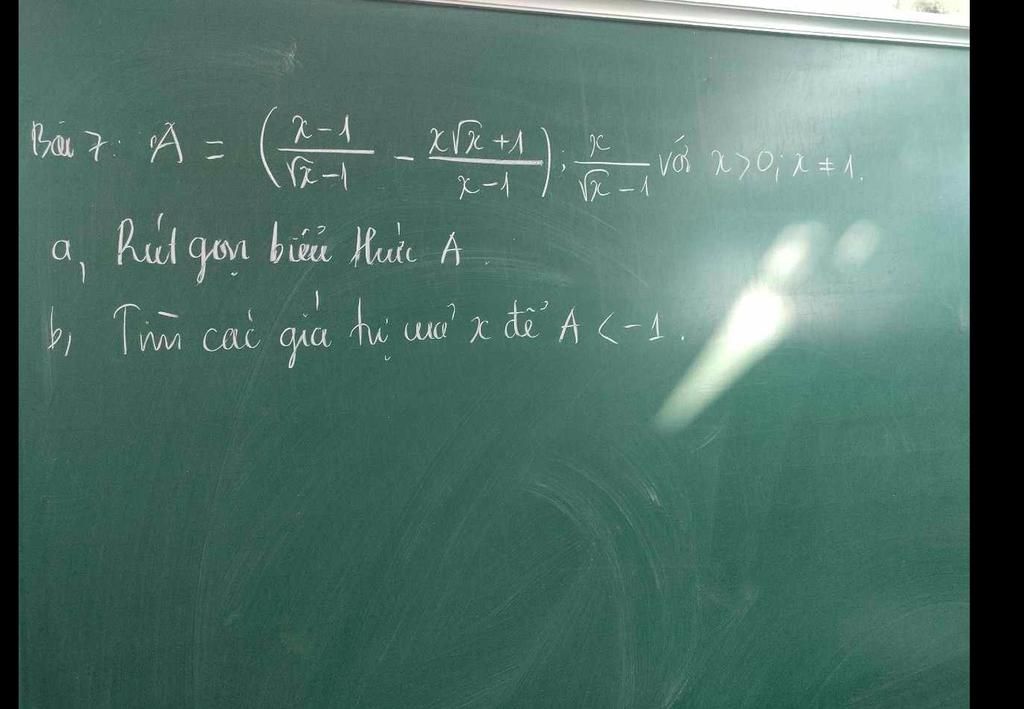 Bài 7: A = (\frac{x-1}{\sqrt{x}-1} - \frac{x\sqrt{x}+1}{x-1}) : \frac{x}{\sqrt{x}-1} với x>0; x≠1.
a, Rút gọn biểu thức A.
b, Tìm các giá trị của x để A < -1.